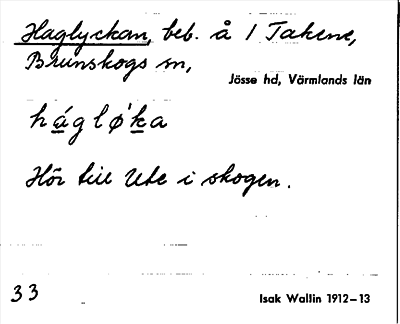 Haglyckan, beb. å 1 Takene,
Brunskogs sn,
Jösse hd, Värmlands län
hágløʹka
Hör till Ute i skogen.
33
Isak Wallin 1912–13